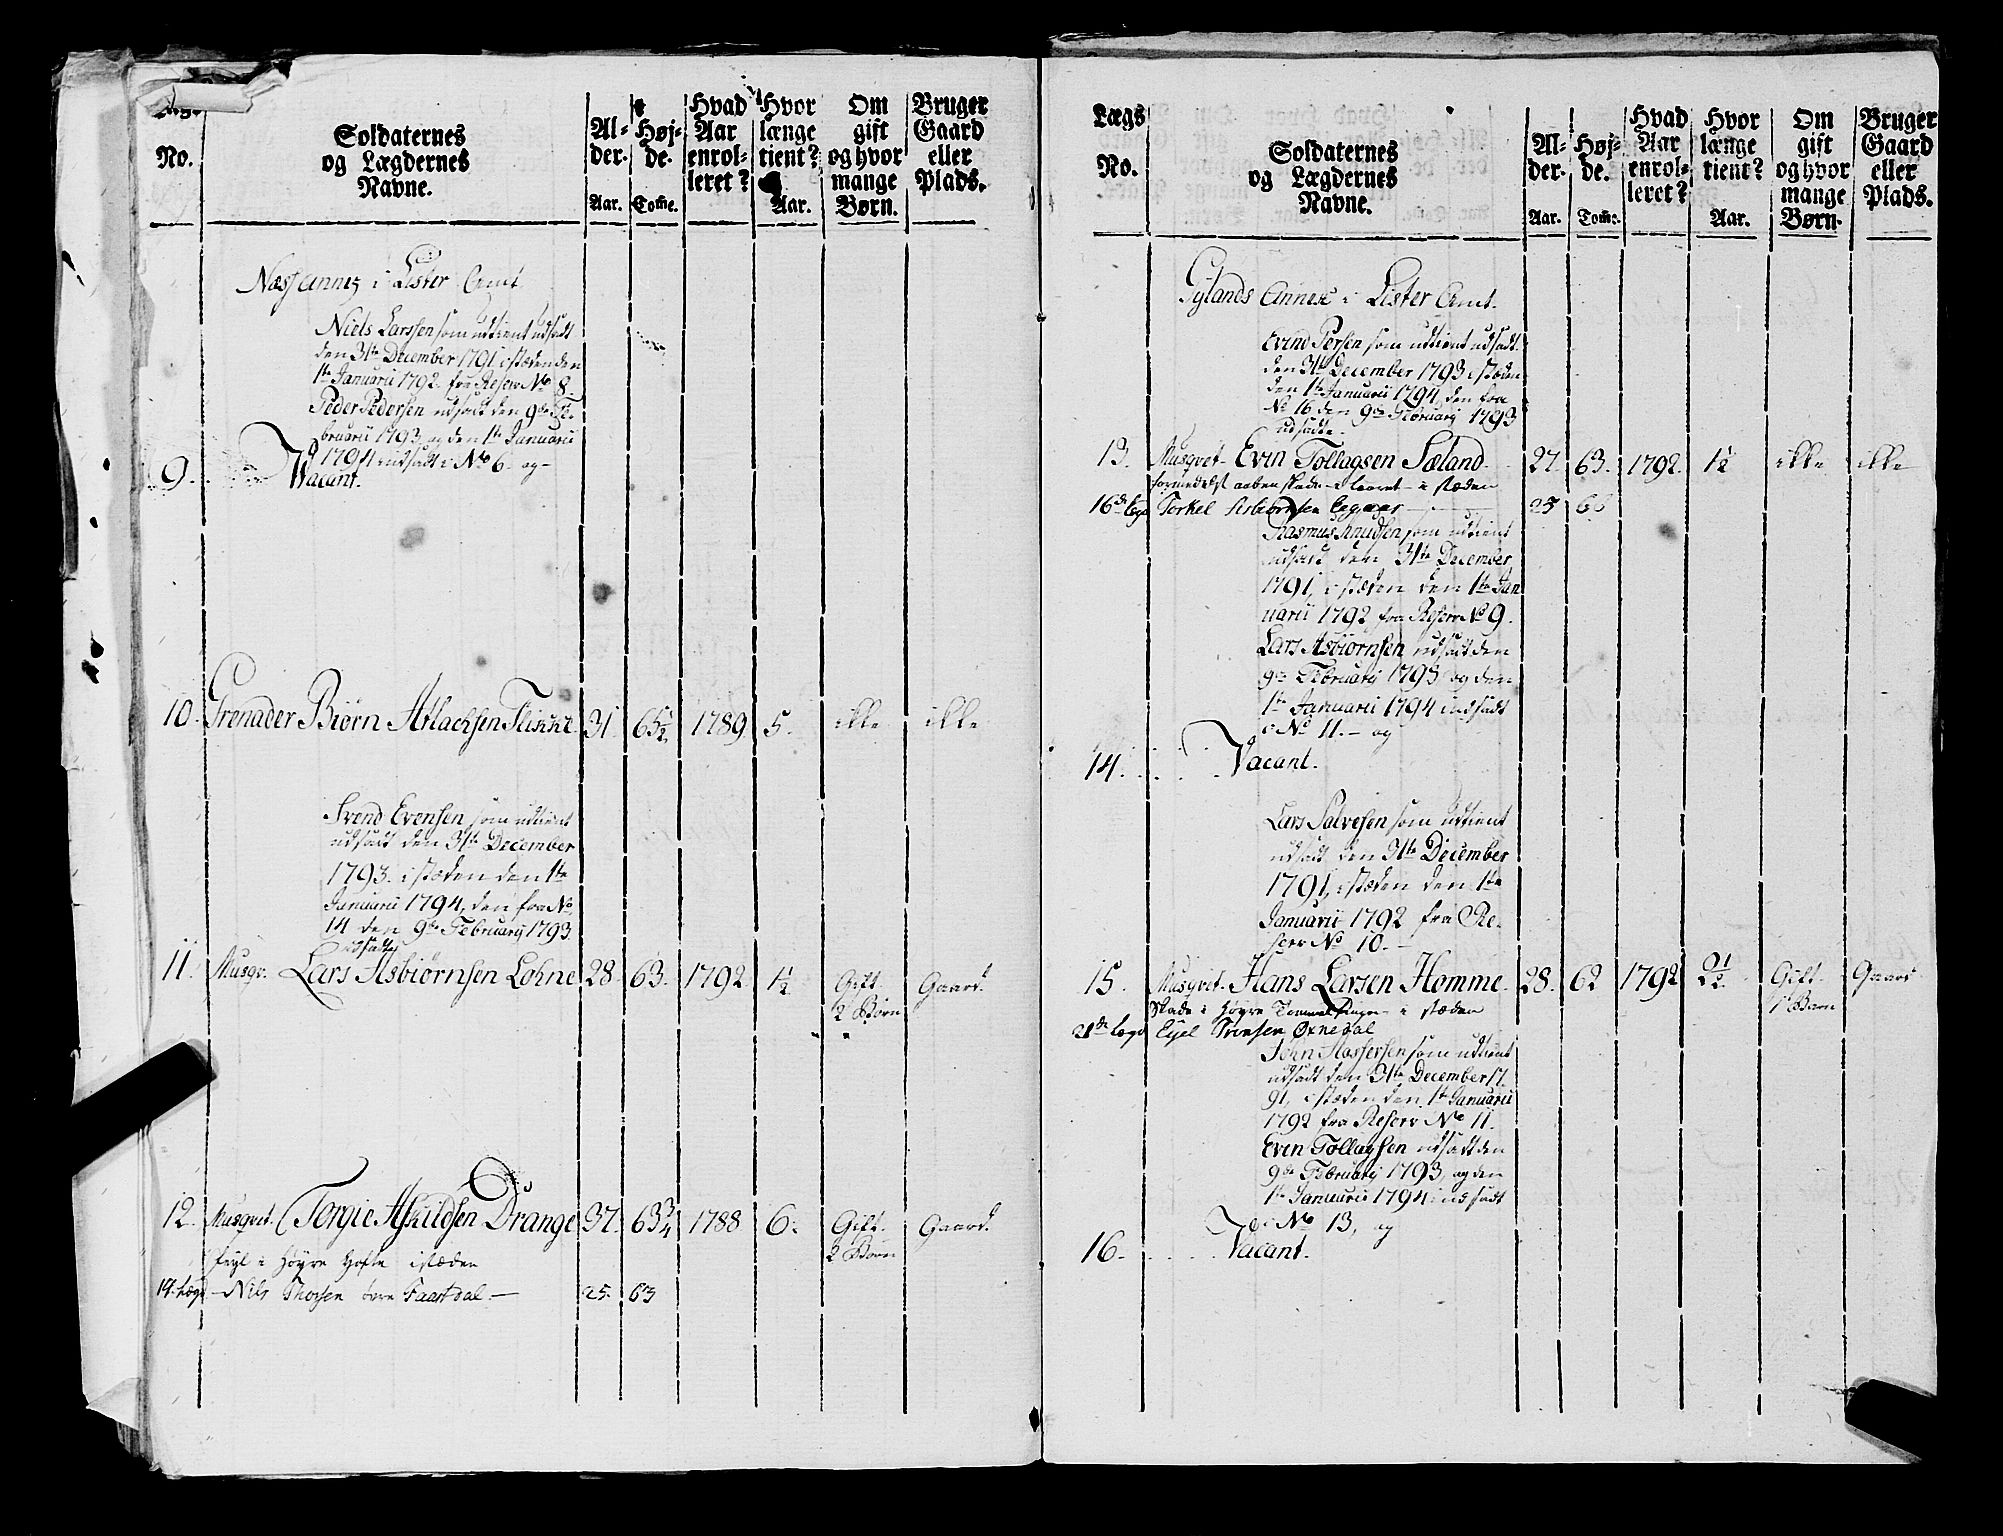 No.
Soldaternes
og Lægdernes
Navne.
Al-
der.
Aar.
Høj-
de.
Tom̄e.
Hvad
Aar
enrol-
leret?
Hvor
længe
tient?
Aar.
Om
gift
og hvor
mange
Børn.
Bruger
Gaard
eller
Plads.
Næs Annex i Lister Amt.
Niels Larssen som udtient udsadt
den 31te December 1791 i stæden den
1te Januarii 1792 fra Reserv No 8
Peder Pedersen udsadt den 9de Fe-
bruarii 1793, og den 1te Januarii
1794 indsadt i No 6. og
9. Vacant.
10. Grenader Biørn Atlachsen 31 65½ 1789 5. ikke ikke
Svend Evensen som udtient
udsadt den 31te December
1793. i stæden den 1te
Januarii 1794, den fra No
14 den 9de February 1793
udsatte
11. Musqv. Lars Asbiørnsen Lohne 28. 63. 1792. 1½ Gift. Gaard.
2 Børn
12. Musqvt. Torgie Askildsen Drange 37. 63¾ 1788 6. Gift. Gaard.
2 Børn
feyl i Høyre Hofte i stæden
14. Lægd Nils Thorsen 25. 63
Lægs
No.
Soldaternes
og Lægdernes
Navne.
Al-
der.
Aar.
Høj-
de.
Tom̄e.
Hvad
Aar
enrol-
leret?
Hvor
længe
tient?
Aar.
Om
gift
og hvor
mange
Børn.
Bruger
Gaard
eller
Plads.
Gylands Annex i Lister Amt.
Evind Persen som udtient udsadt.
den 31te December 1793 i stæden
den 1te Januarii 1794, den fra
No 16 den 9de February 1793
udsadte
13. Musqvet. Evin Tollagsen Sæland. 27. 63. 1792. 1½ ikke ikke
formedelst aaben skade i Laaret i stæden
16de Lægd Torkel Asbiørnsen Egeaas 25 66
Rasmus Knudsen som udtient
udsadt den 31te December
1791, i stæden den 1te Jan
uarii 1792 fra Reserv No 9.
Lars Asbiørnsen udsadt den
9de February 1793 og den
1te Januarii 1794 indsadt
i No 11. og
14. Vacant.
Lars Salvesen som udtient
udsadt den 31te December
1791, i stæden den 1te
Januarii 1792 fra Re-
serv No 10.
15. Musqvet. Hans Larsen Homme. 28. 62 1792 2½ Gift. Gaard
1 Barn
Skade i Høyre Tommelfinger i stæden
21de Lægd Eyel Svensen Øxnedal
John Assersen som udtient
udsadt den 31te December 17
91, i stæden den 1te Januarii
1792 fra Reserv No 11.
Even Tollagsen udsadt den
9de February 1793, og den
1te Januarii 1794 indsadt
i No 13, og
16. Vacant.